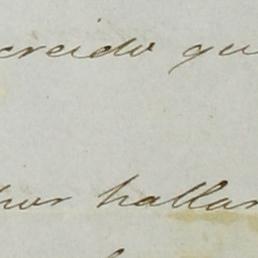 creido qu
por hallar